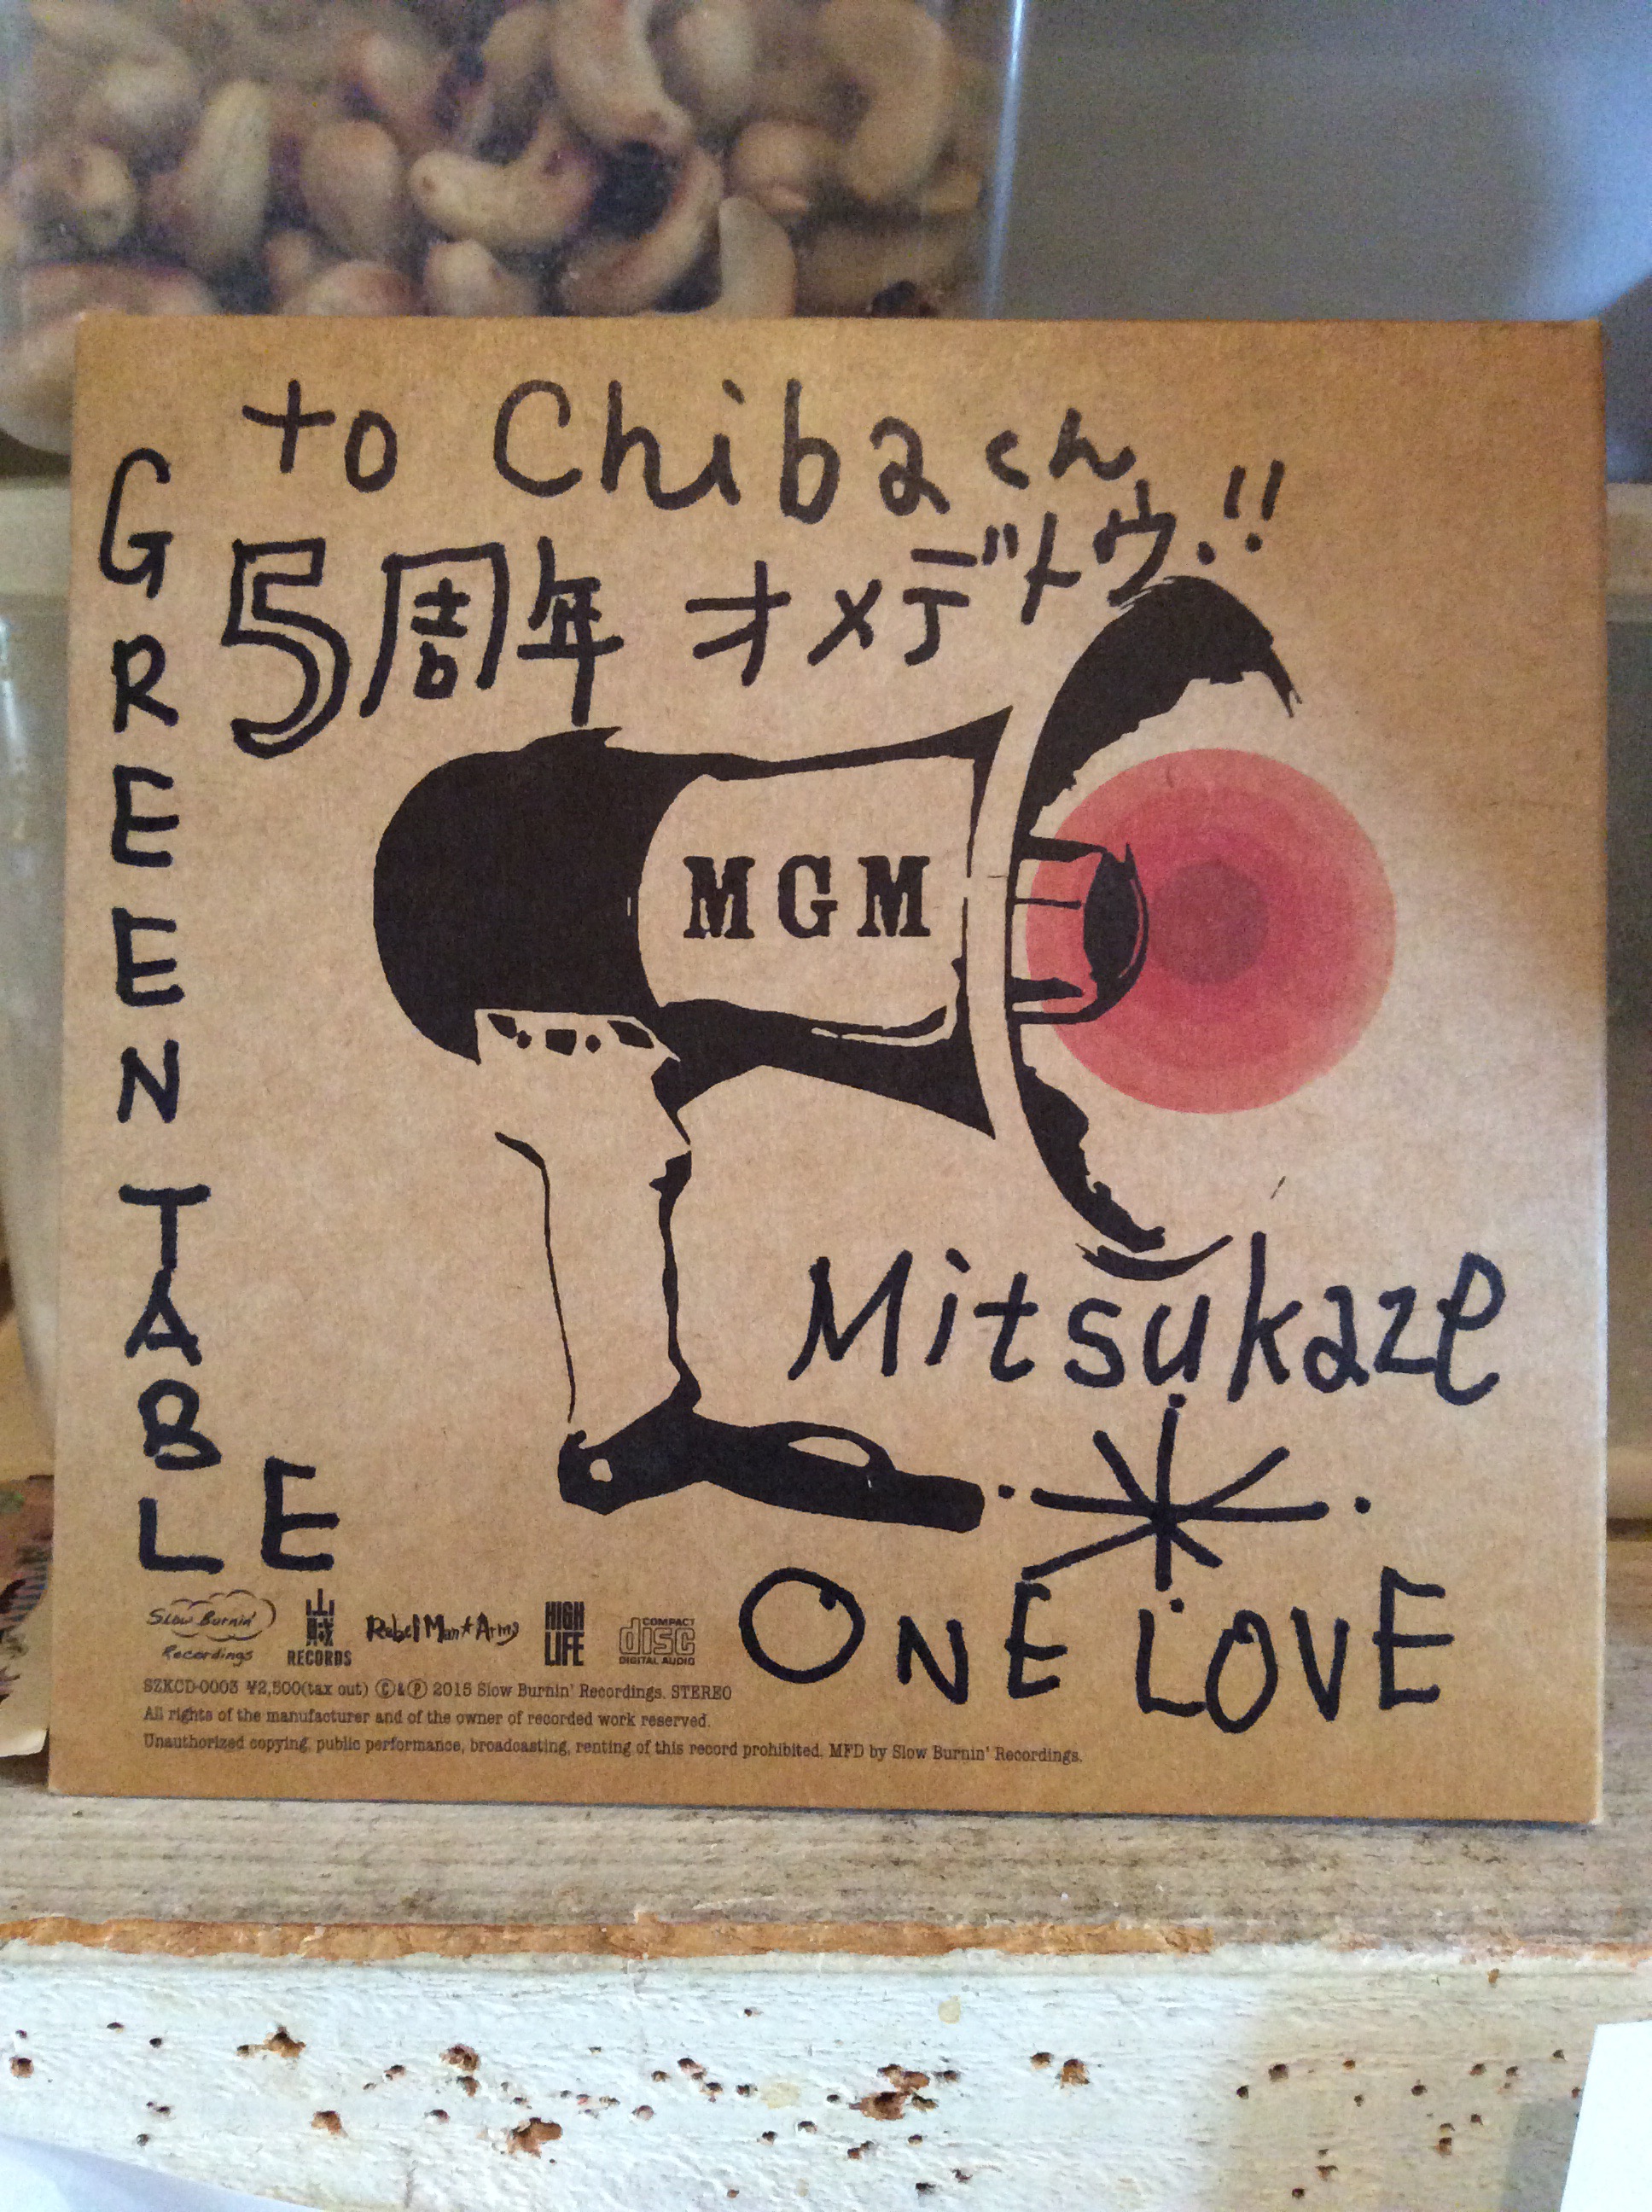 to Chibaくん
5周年 オメデトウ.!!
GREEN TABLE
MGM
Mitsukaze
ONE LOVE
Slow Burnin' Recordings
山賊 RECORDS
Rebel Man★Army
HIGH LIFE
COMPACT disc DIGITAL AUDIO
SZKCD-0003 ¥2,500(tax out) Ⓒ&Ⓟ 2015 Slow Burnin' Recordings. STEREO
All rights of the manufacturer and of the owner of recorded work reserved.
Unauthorized copying, public performance, broadcasting, renting of this record prohibited. MFD by Slow Burnin' Recordings.